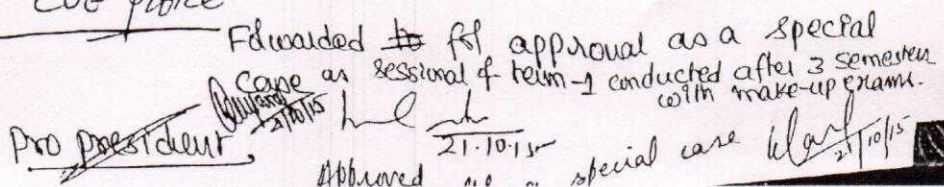 COE Office
Forwarded to for approval as a special
case as sessional of term-1 conducted after 3 semester
with make-up exams.
21/10/15
21.10.15
Pro president
Approved as a special case
21/10/15